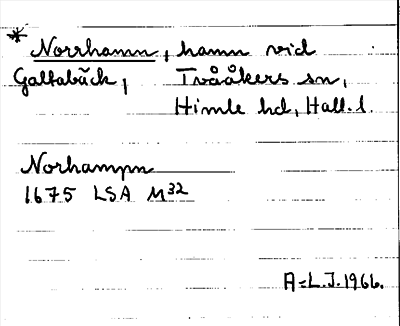 * Norrhamn, hamn vid
Galtabäck, Tvååkers sn,
Himle hd, Hall. l.
Norhampn
1675 LSA M³²
A-L. J. 1966.